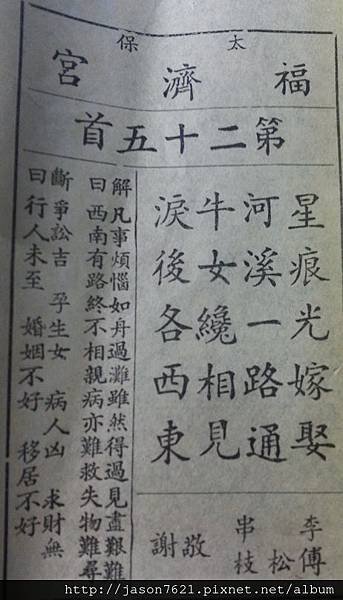 太保
福濟宮
第二十五首
星痕光嫁娶
河溪一路通
牛女纔相見
淚後各西東
解曰 凡事煩惱如舟過灘雖然得過見盡艱難
西南有路終不相親病亦難救失物難尋
斷曰 爭訟吉 孕生女 病人凶 求財無
行人未至 婚姻不好 移居不好
李傅
松
串枝
敬
謝
http://jason7621.pixnet.net/album